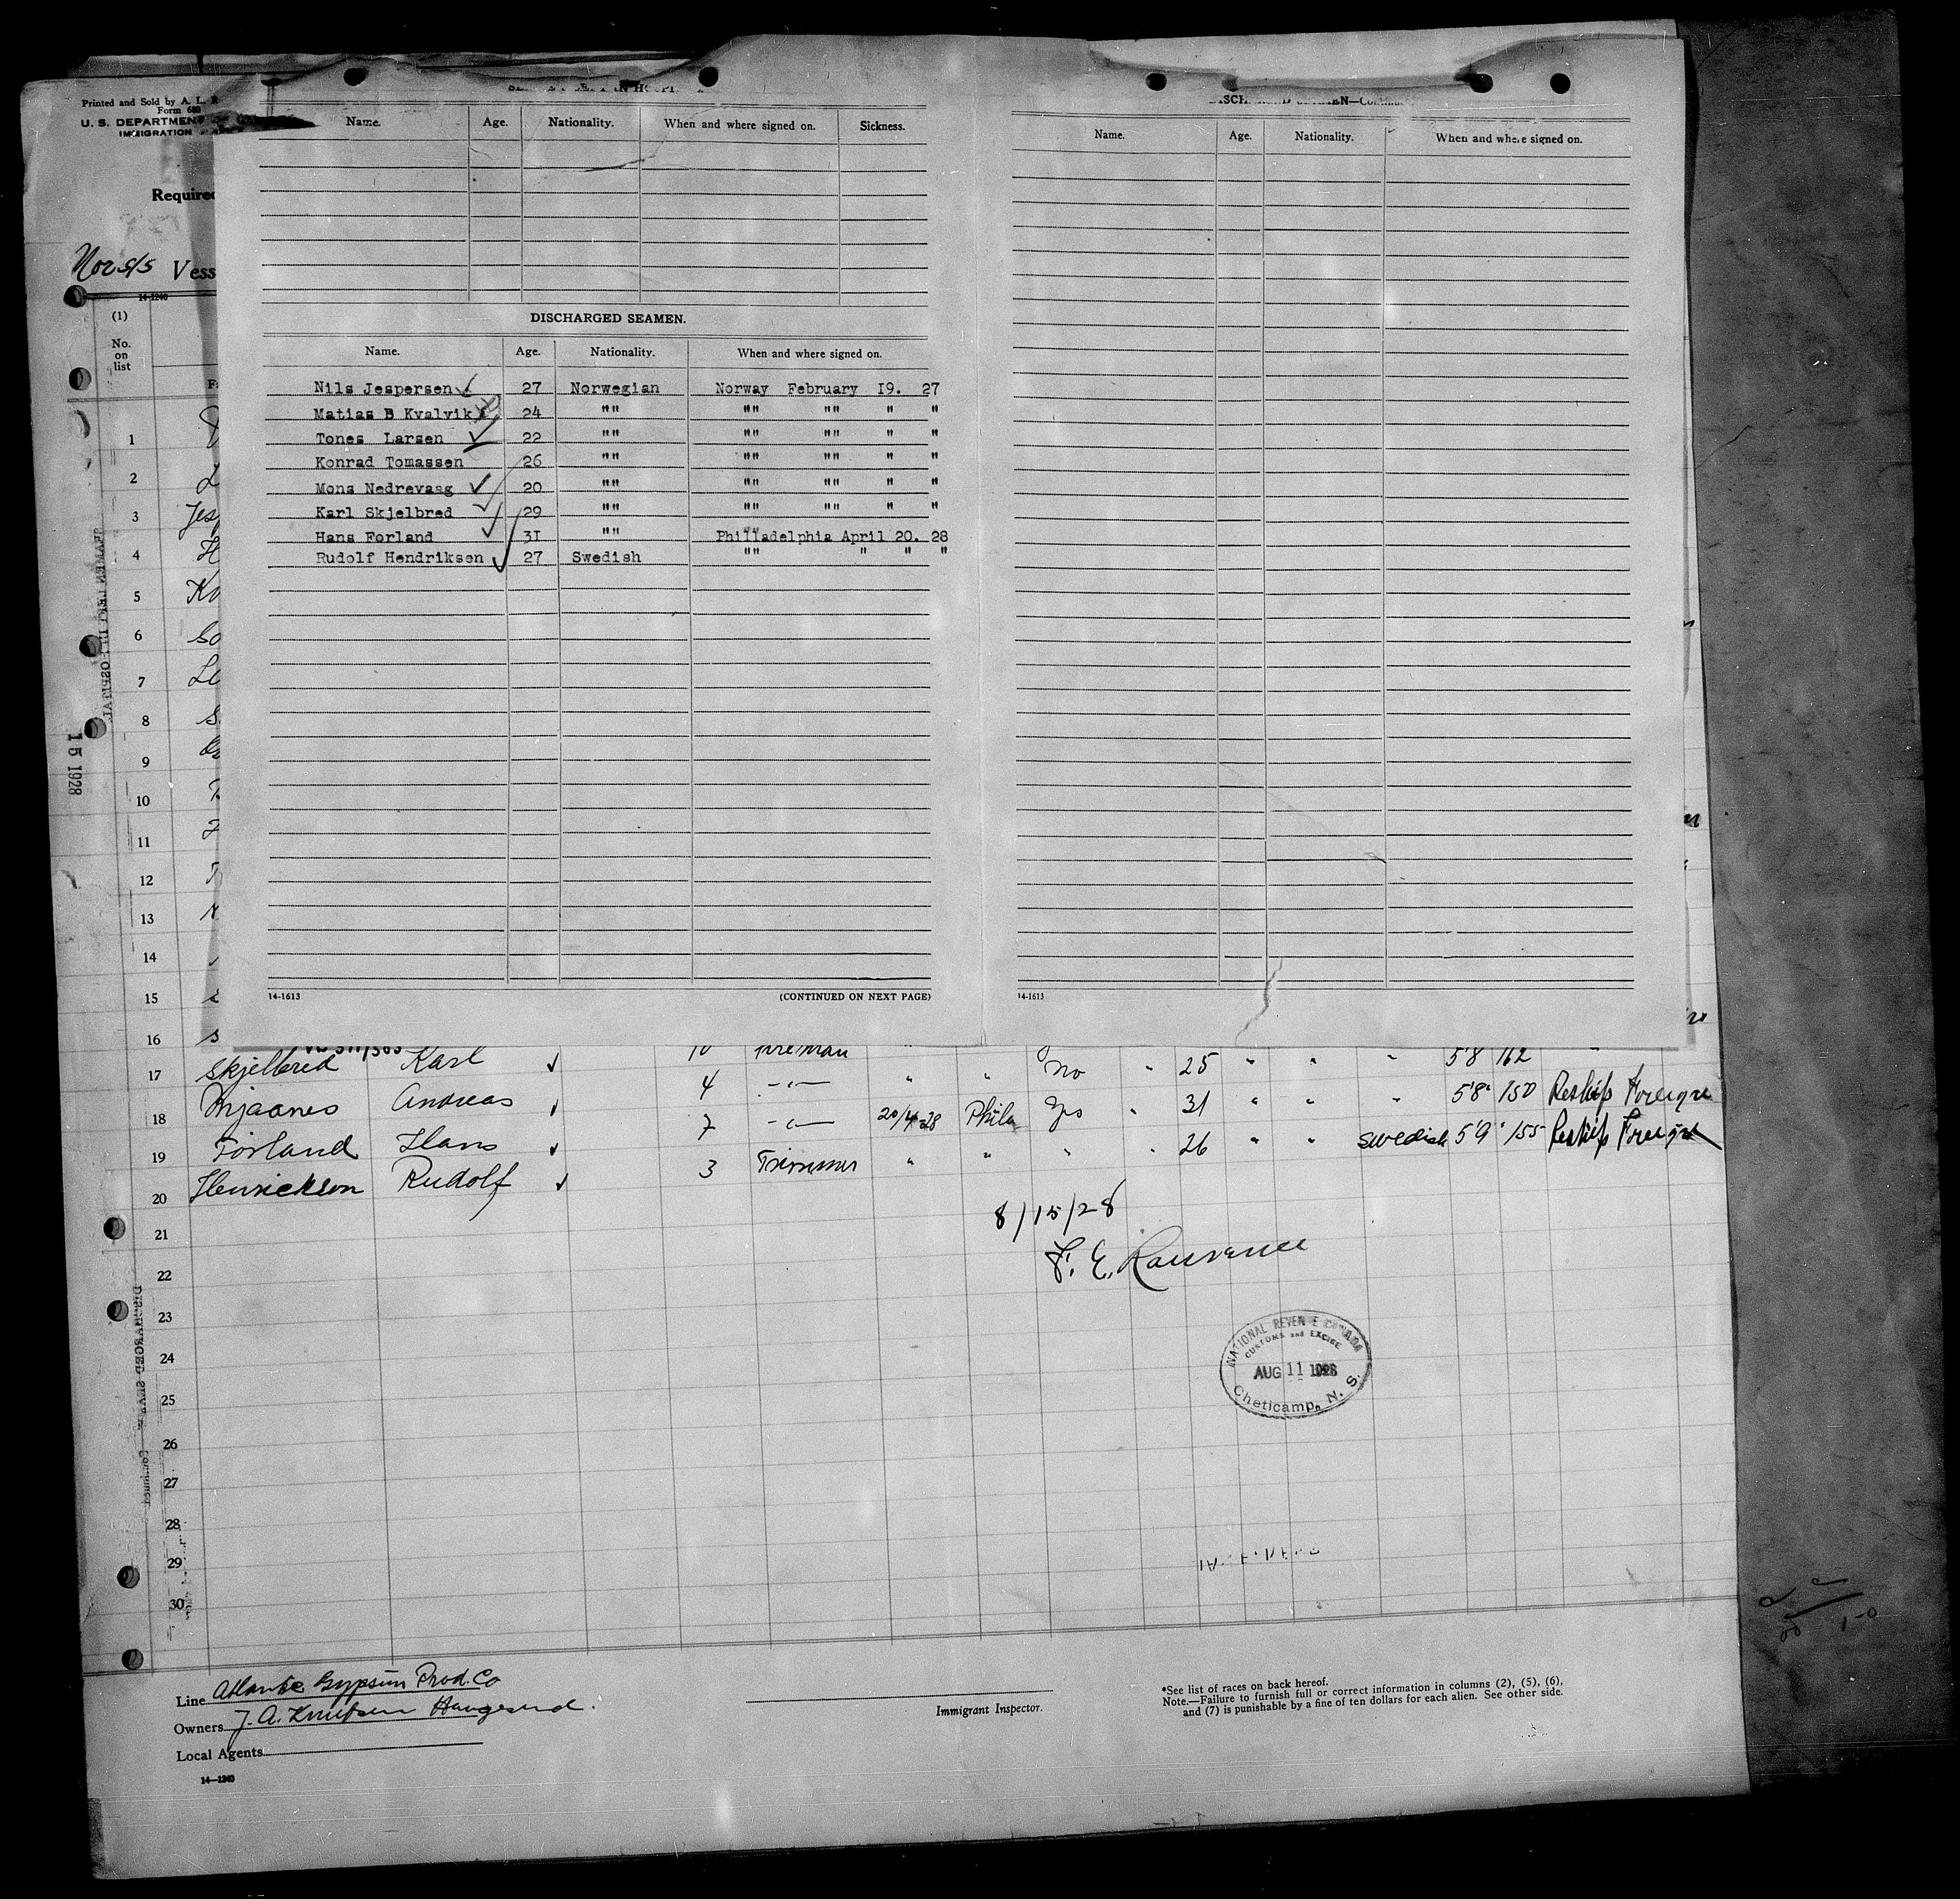 Printed and Sold by A. L. R
Form 680
U. S. DEPARTMENT
IMMIGRATION
Required
Nor S/S Vess
14-1240
(1)
No.
on
list
Name. Age. Nationality. When and where signed on. Sickness.
DISCHARGED SEAMEN.
Name. Age. Nationality. When and where signed on.
Nils Jespersen 27 Norwegian Norway February 19. 27
Matias B Kvalvik 24 "" "" "" " "
Tones Larsen 22 "" "" "" " "
Konrad Tomassen 26 "" "" "" " "
Mons Nedrevaag 20 "" "" "" " "
Karl Skjelbred 29 "" "" "" " "
Hans Forland 31 "" Philladelphia April 20. 28
Rudolf Hendriksen 27 Swedish "" " " "
14-1613 (CONTINUED ON NEXT PAGE)
DISCHARGED SEAMEN—Continued
Name. Age. Nationality. When and where signed on.
14-1613
SEAMEN LEFT IN HOSPITAL
15 1928
1
2
3 Jesp
4 H
5 Kv
6
7
8
9
10
11
12
13
14
15
16
17 Skjelbred Karl 10 Fireman " " no " 25 " " " 5'8 162 "
18 Andreas 4 -"- " " yes " 31 " " " 5'8" 150 Reship Foreign
19 Forland Hans 7 -"- 20/4-28 Phila " " 26 " " Swedish 5'9" 155 Reship Foreign
20 Henrickson Rudolf 3 Trimmer " "
21
22
23
24
25
26
27
28
29
30
8/15/28
F. E.
NATIONAL REVENUE CANADA
CUSTOMS and EXCISE
AUG 11 1928
Cheticamp, N. S.
DISCHARGED SEAMEN—Continued
Line Atlantic Gypsum Prod. Co
Owners J. A. Knutsen Haugesund.
Local Agents
14-1240
Immigrant Inspector.
*See list of races on back hereof.
Note.—Failure to furnish full or correct information in columns (2), (5), (6),
and (7) is punishable by a fine of ten dollars for each alien. See other side.